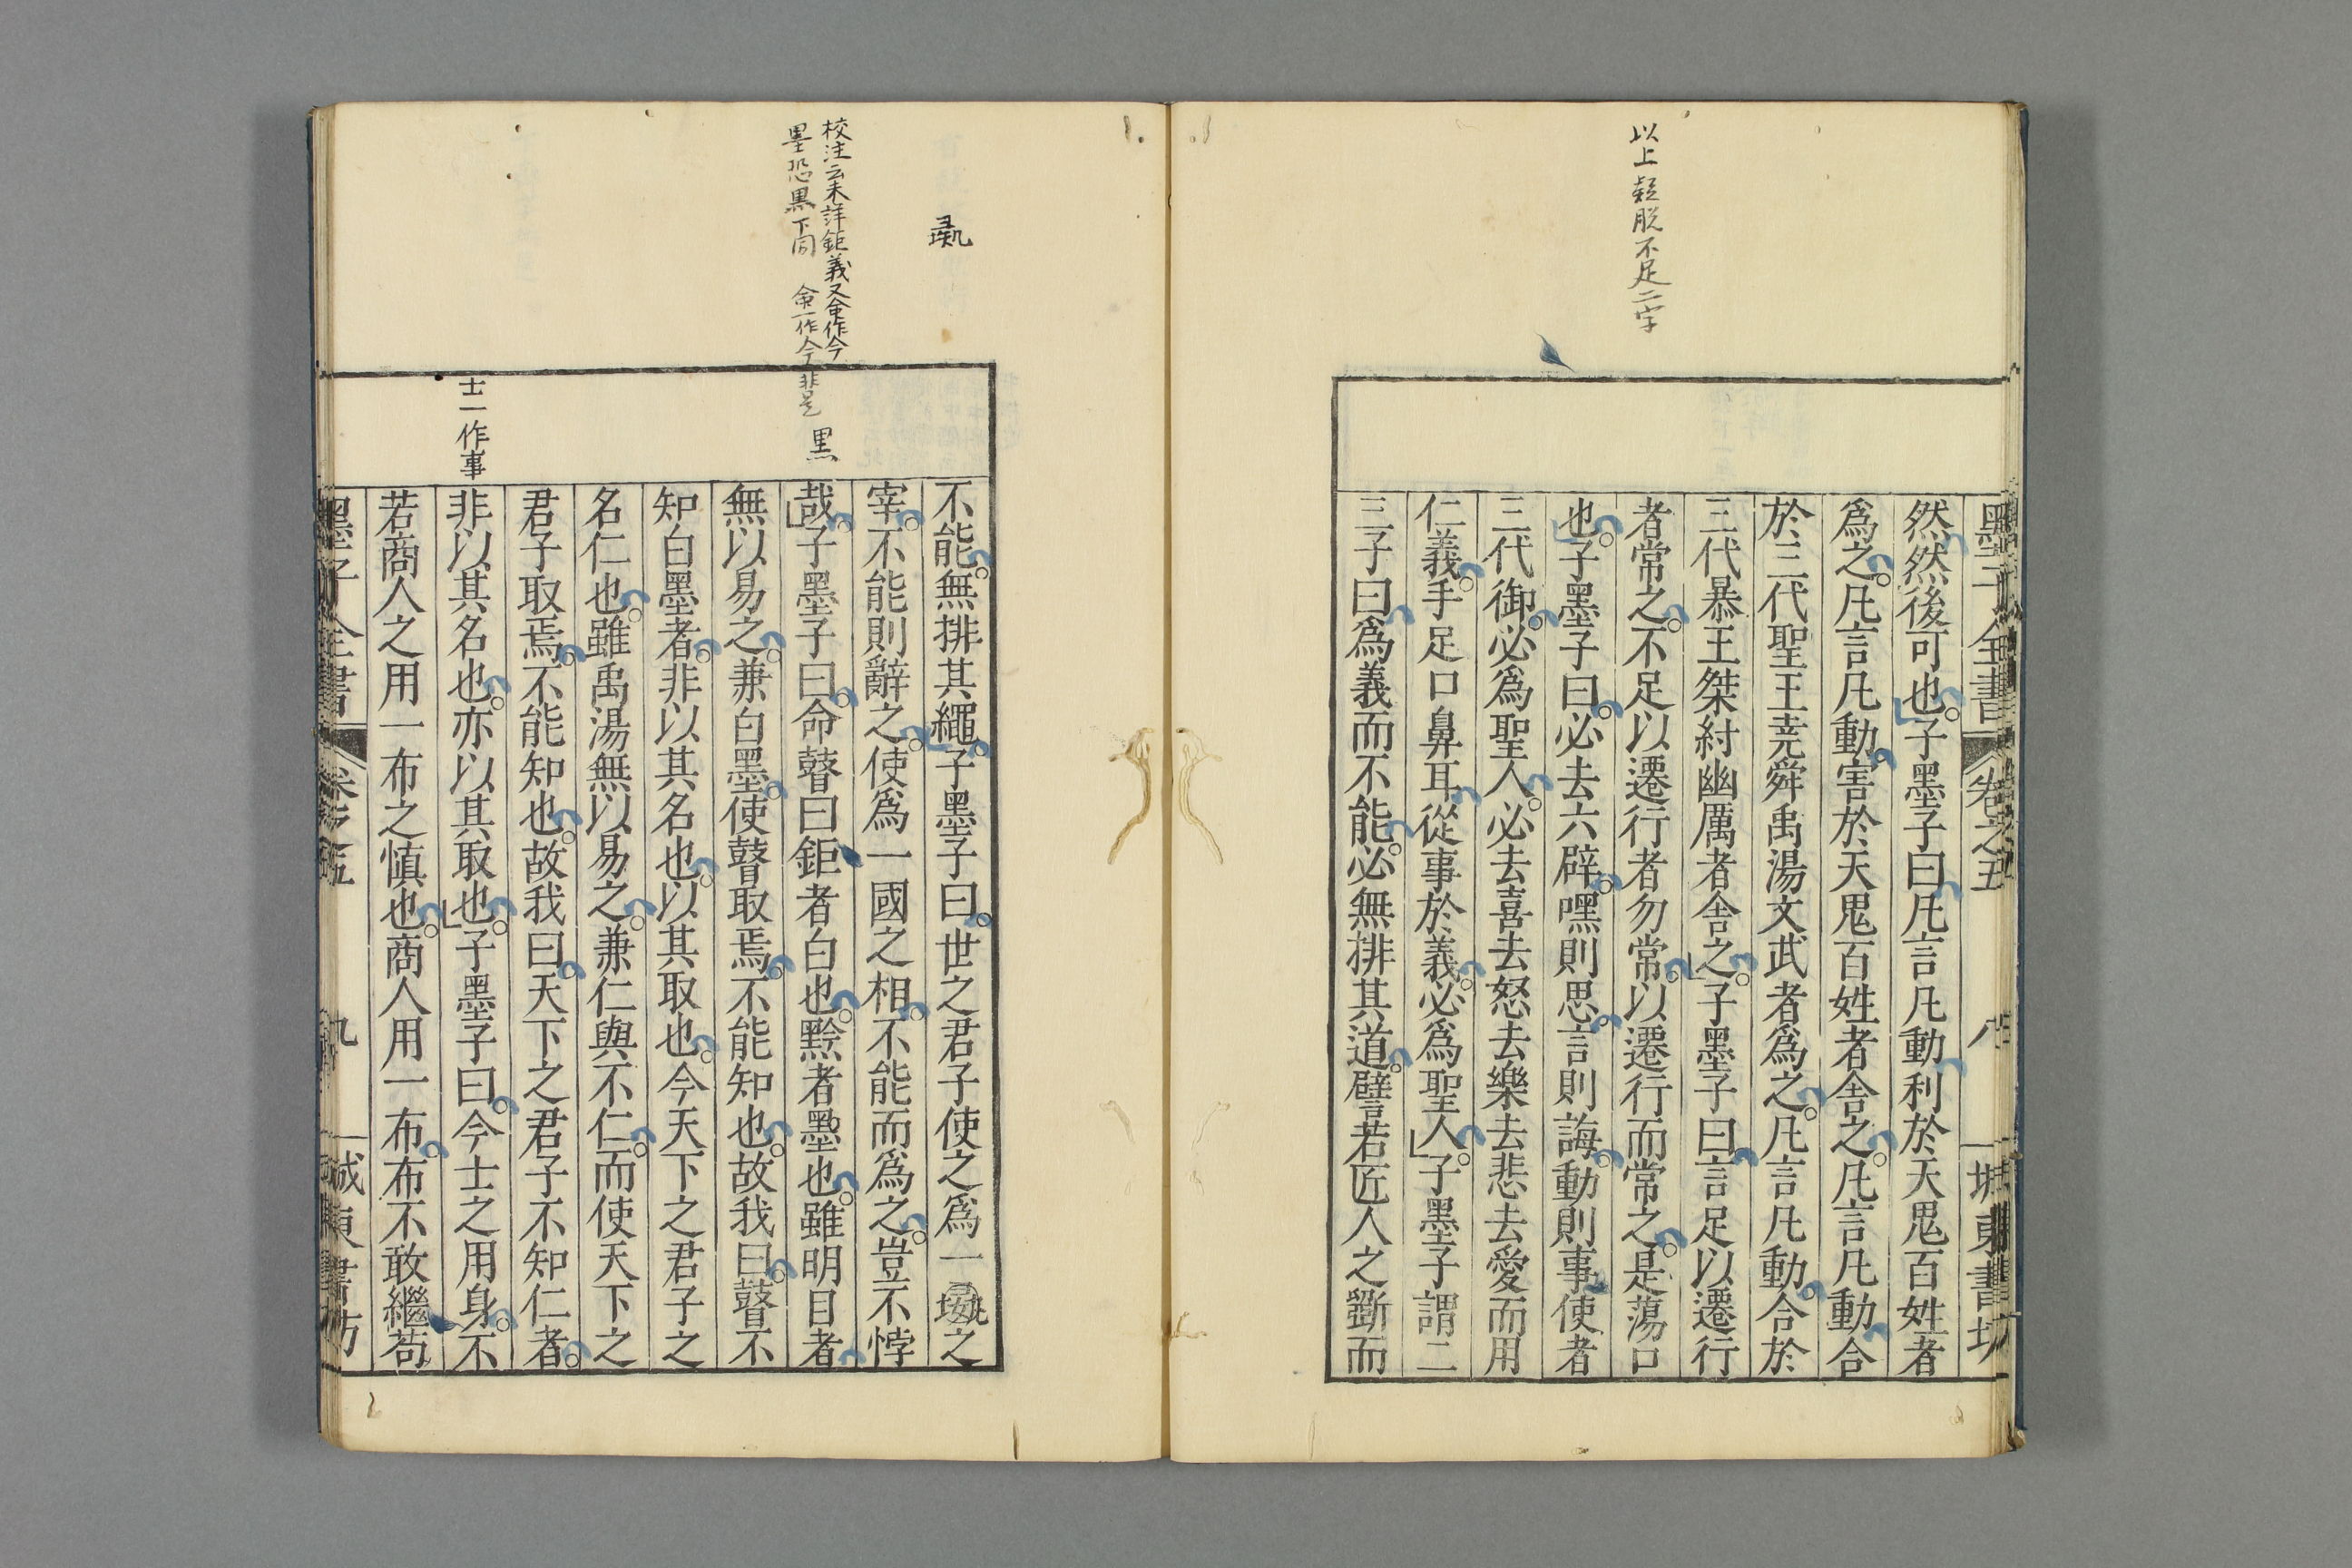 以上疑脱不足二字
墨子全書 卷之五 八 城東書坊
然然後可也子墨子曰凡言凡動利於天鬼百姓者
爲之凡言凡動害於天鬼百姓者舎之凡言凡動合
於三代聖王堯舜禹湯文武者爲之凡言凡動合於
三代暴王桀紂幽厲者舎之子墨子曰言足以遷行
者常之不足以遷行者勿常以遷行而常之是蕩口
也子墨子曰必去六辟嘿則思言則誨動則事使者
三代御必爲聖人必去喜去怒去樂去悲去愛而用
仁義手足口鼻耳從事於義必爲聖人子墨子謂二
三子曰爲義而不能必無排其道譬若匠人之斵而
校注云未詳鉅義又命作今
墨恐黒下同 命一作今非是
黒
士一作事
不能無排其繩子墨子曰世之君子使之爲一之
宰不能則辭之使爲一國之相不能而爲之豈不悖
哉子墨子曰命瞽曰鉅者白也黔者墨也雖明目者
無以易之兼白墨使瞽取焉不能知也故我曰瞽不
知白墨者非以其名也以其取也今天下之君子之
名仁也雖禹湯無以易之兼仁與不仁而使天下之
君子取焉不能知也故我曰天下之君子不知仁者
非以其名也亦以其取也子墨子曰今士之用身不
若商人之用一布之慎也商人用一布布不敢繼苟
墨子全書 卷之五 九 城東書坊